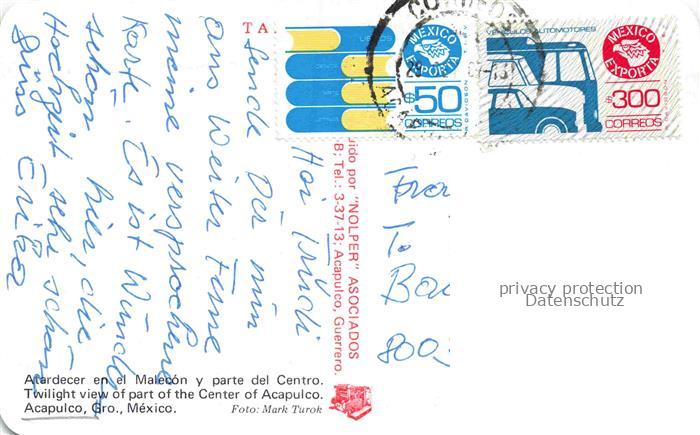 TA
CORREOS
MEXICO
EXPORTA
$50
CORREOS
VEHICULOS AUTOMOTORES
MEXICO
EXPORTA
$300
CORREOS
Hoi
Sende Dir nun
aus weiter Ferne
meine versprochene
Karte. Es ist
schön hier, die
Hochzeit sehr schön
Erika
uido por "NOLPER" ASOCIADOS
B; Tel.: 3-37-13, Acapulco, Guerrero.
To
800,
privacy protection
Datenschutz
Atardecer en el Malecón y parte del Centro.
Twilight view of part of the Center of Acapulco.
Acapulco, Gro., México.
Foto: Mark Turok